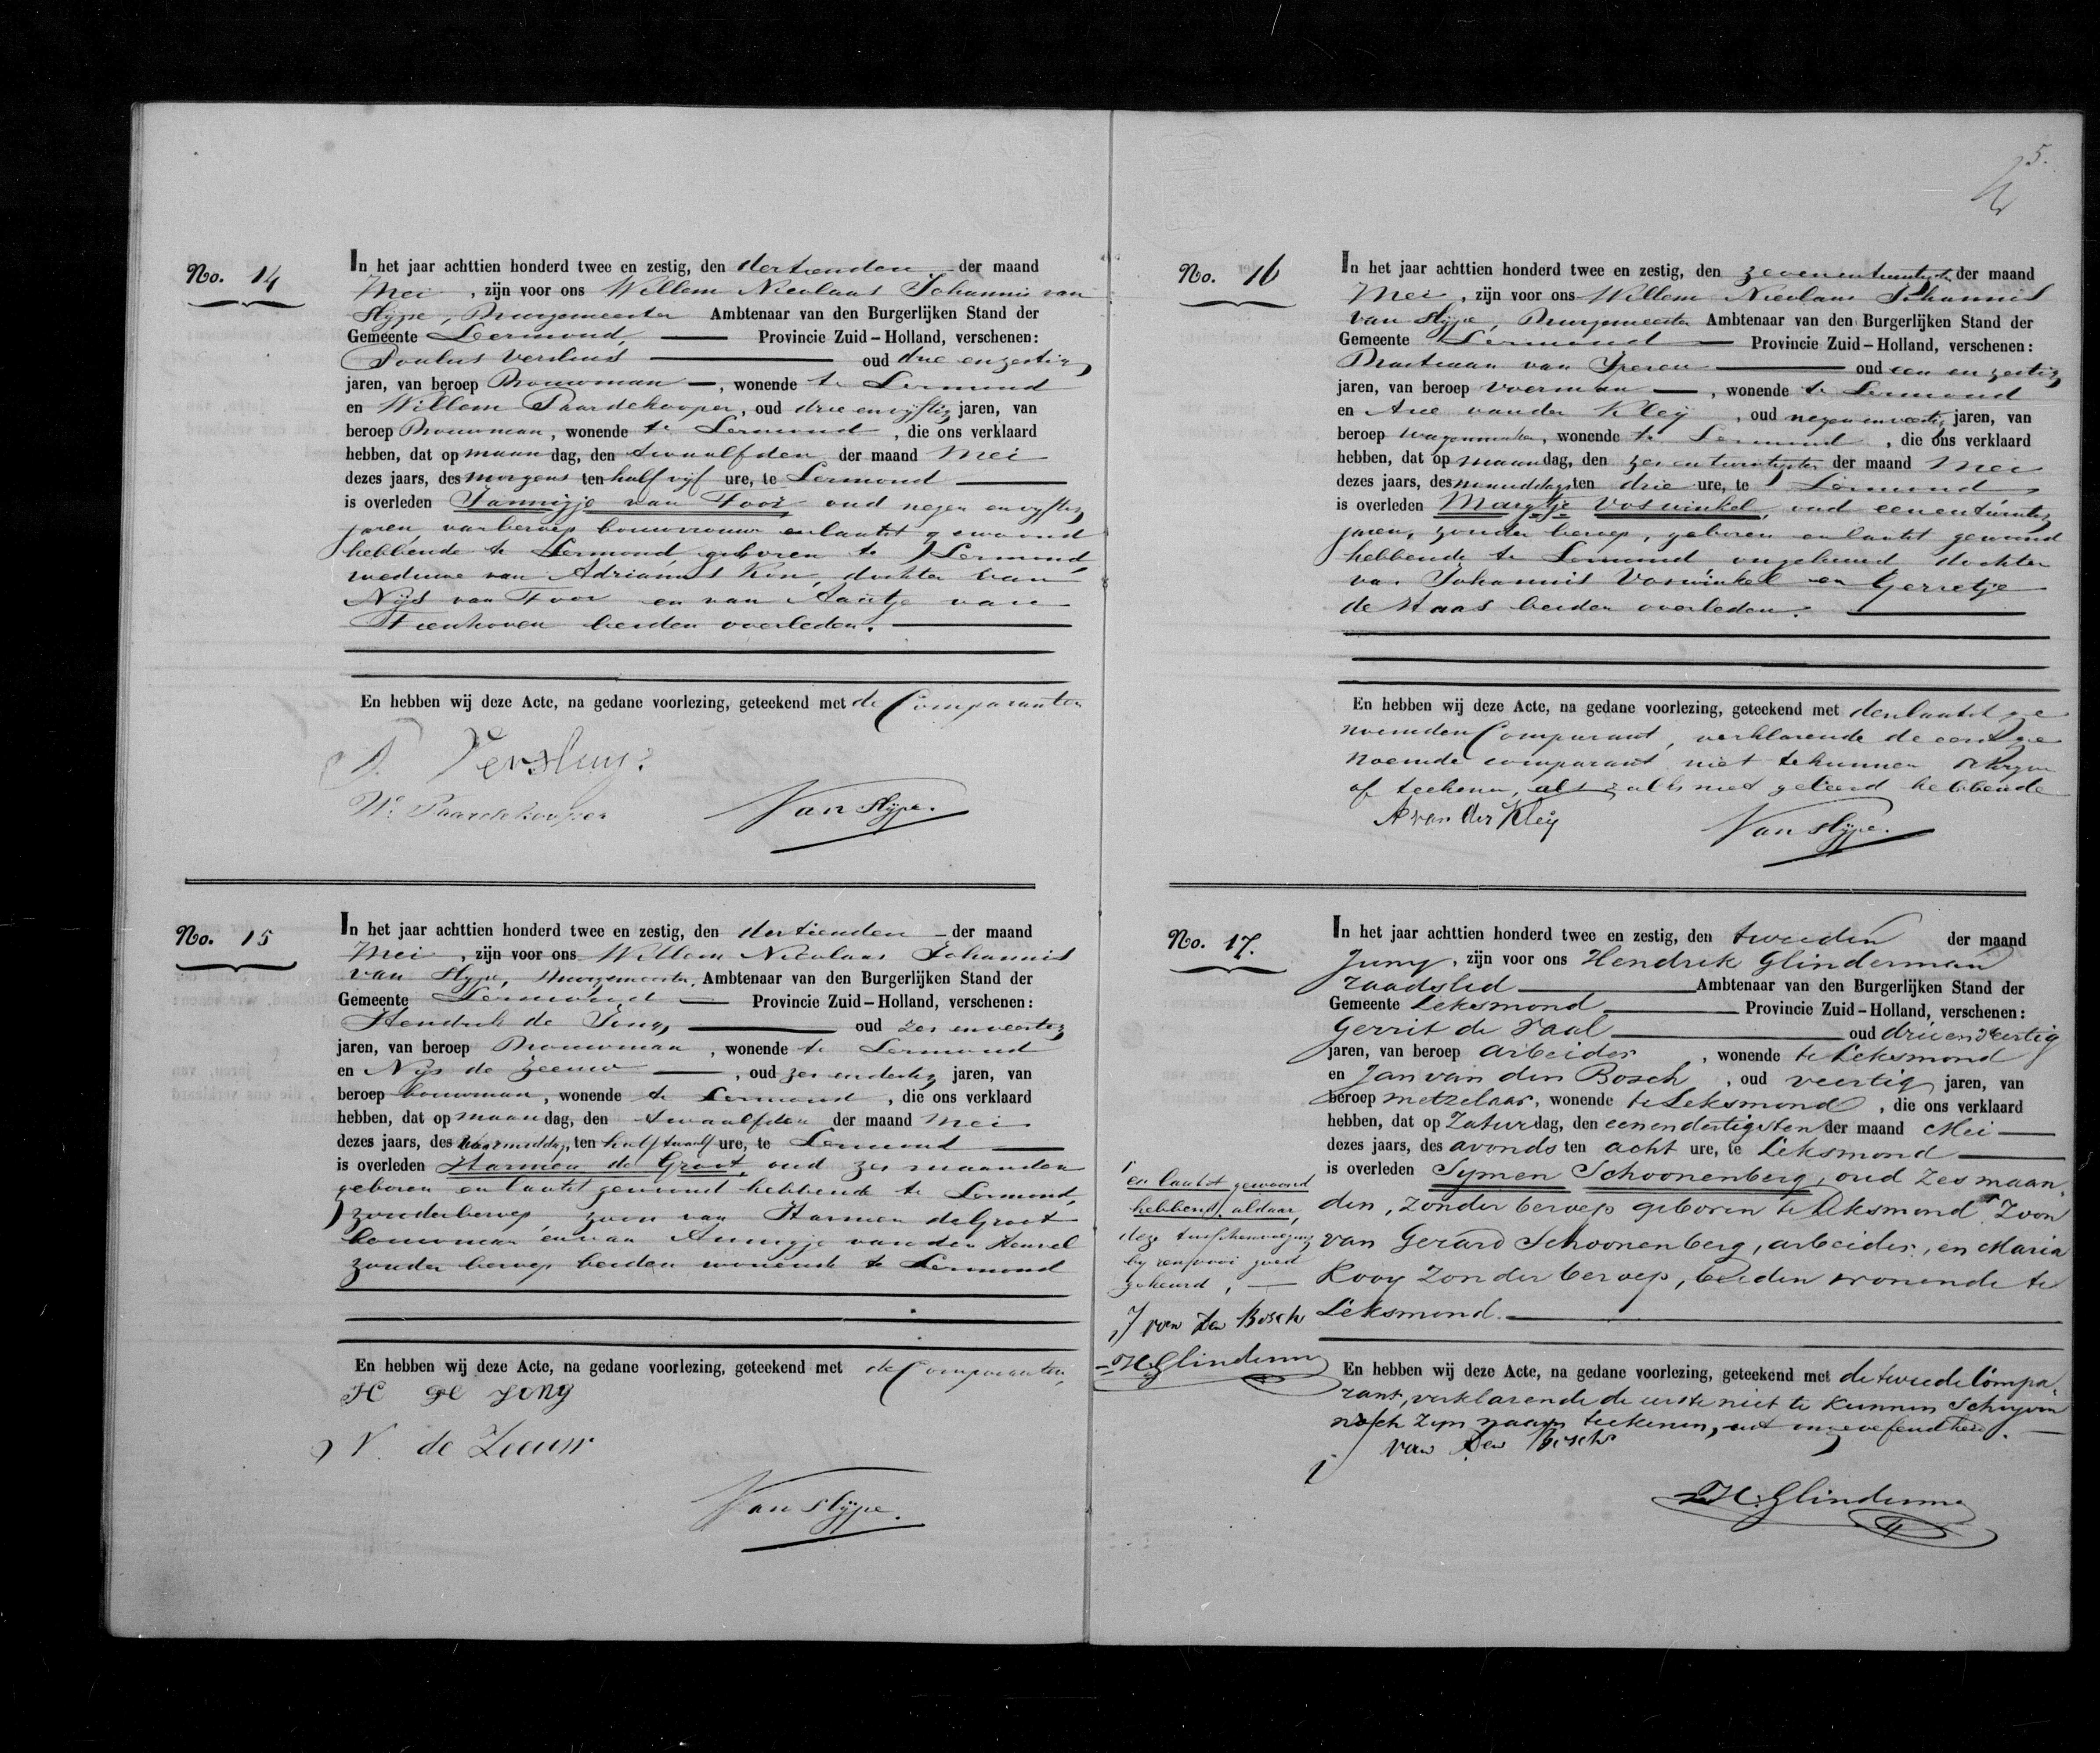 5.
No. 14
In het jaar achttien honderd twee en zestig, den dertienden der maand
Mei, zijn voor ons Willem Nicolaas Johannis van
Slijpe, Burgemeester Ambtenaar van den Burgerlijken Stand der
Gemeente Lexmond, Provincie Zuid-Holland, verschenen:
oud drie en zestig
jaren, van beroep Bouwman, wonende te Lexmond
en Willem Paardekooper, oud drie en vijftig jaren, van
beroep Bouwman, wonende te Lexmond, die ons verklaard
hebben, dat op maandag, den twaalfden der maand Mei
dezes jaars, des morgens ten half vijf ure, te Lexmond
is overleden Jannigje van Toor oud negen en vijftig
jaren, van beroep bouwvrouw en laatst gewoond
hebbende te Lexmond, geboren te Lexmond,
weduwe van Adrianus Kon, dochter van
Nijs van Toor en van Aantje van
Steenhoven beiden overleden.
En hebben wij deze Acte, na gedane voorlezing, geteekend met de Comparanten
P. Versluys
W. Paardekooper
Van Slijpe.
No. 15
In het jaar achttien honderd twee en zestig, den dertienden der maand
Mei, zijn voor ons Willem Nicolaas Johannis
van Slijpe, Burgemeester, Ambtenaar van den Burgerlijken Stand der
Gemeente Lexmond Provincie Zuid-Holland, verschenen:
Hendrik de Jong oud zes en veertig
jaren, van beroep Bouwman, wonende te Lexmond
en Nijs de Zeeuw, oud zes en dertig jaren, van
beroep bouwman, wonende te Lexmond, die ons verklaard
hebben, dat op maandag, den twaalfden der maand Mei
dezes jaars, des voormiddag, ten half twaalf ure, te Lexmond
is overleden Harmen de Groot, oud zes maanden
geboren en laatst gewoond hebbende te Lexmond,
zonder beroep, zoon van Harmen de Groot
bouwman en van Annigje van den Heuvel
zonder beroep beiden wonende te Lexmond
En hebben wij deze Acte, na gedane voorlezing, geteekend met de Comparanten,
H de Jong
N. de Zeeuw
Van Slijpe.
No. 16
In het jaar achttien honderd twee en zestig, den zevenentwintigsten der maand
Mei, zijn voor ons Willem Nicolaas Johannis
van Slijpe, Burgemeester Ambtenaar van den Burgerlijken Stand der
Gemeente Lexmond Provincie Zuid-Holland, verschenen:
Bastiaan van Iperen oud een en zestig
jaren, van beroep voerman, wonende te Lexmond
en Arie van der Kleij, oud negen en veertig jaren, van
beroep wagenmaker, wonende te Lexmond, die ons verklaard
hebben, dat op maandag, den zes en twintigsten der maand Mei
dezes jaars, des namiddags ten drie ure, te Lexmond
is overleden Margtje Voswinkel, oud eenentwintig
jaren, zonder beroep, geboren en laatst gewoond
hebbende te Lexmond ongehuwd dochter
van Johannis Voswinkel en Gerretje
de Haas beiden overleden.
En hebben wij deze Acte, na gedane voorlezing, geteekend met den laatst ge
noemden Comparant, verklarende de eerst ge
noemde comparant niet te kunnen schrijven
of teekenen, als zulks niet geleerd hebbende
A van der Kleij
Van Slijpe.
No. 17.
In het jaar achttien honderd twee en zestig, den tweeden der maand
Juny, zijn voor ons Hendrik Glinderman
raadslid Ambtenaar van den Burgerlijken Stand der
Gemeente Leksmond Provincie Zuid-Holland, verschenen:
Gerrit de Raal oud drie en veertig
jaren, van beroep arbeider, wonende te Leksmond
en Jan van den Bosch, oud veertig jaren, van
beroep metzelaar, wonende te Leksmond, die ons verklaard
hebben, dat op Zaturdag, den eenendertigsten der maand Mei
dezes jaars, des avonds ten acht ure, te Leksmond
is overleden Symen Schoonenberg, oud zes maan
den, zonder beroep geboren te Leksmond Zoon
van Gerard Schoonenberg, arbeider, en Maria
Kooy zonder beroep, beiden wonende te
Leksmond.
en laatst gewoond
hebbend aldaar,
deze tusschenvoeging
by renvooi goed
gekeurd,
J van den Bosch
H. Glinderman
En hebben wij deze Acte, na gedane voorlezing, geteekend met de tweede Compa
rant, verklarende de eerste niet te kunnen Schrijven
noch zijn naam teekenen, uit ongeoefendheid.
J van den Bosch
H. Glinderman